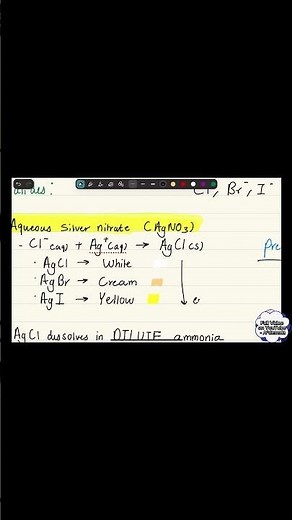 Cl⁻, Br⁻, I⁻
Aqueous Silver nitrate (AgNO₃)
- Cl⁻(aq) + Ag⁺(aq) → AgCl(s)
· AgCl → White
· AgBr → Cream
· AgI → Yellow
AgCl dissolves in DILUTE ammonia
Full Video
on YouTube